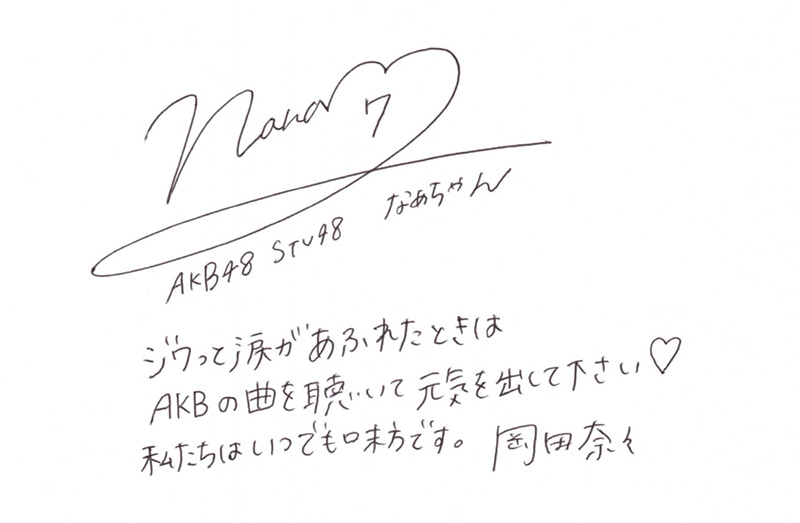 nana♡7
なぁちゃん
AKB48 STU48
ジワっと涙があふれたときは
AKBの曲を聴いて元気を出して下さい♡
私たちはいつでも味方です。 岡田奈々